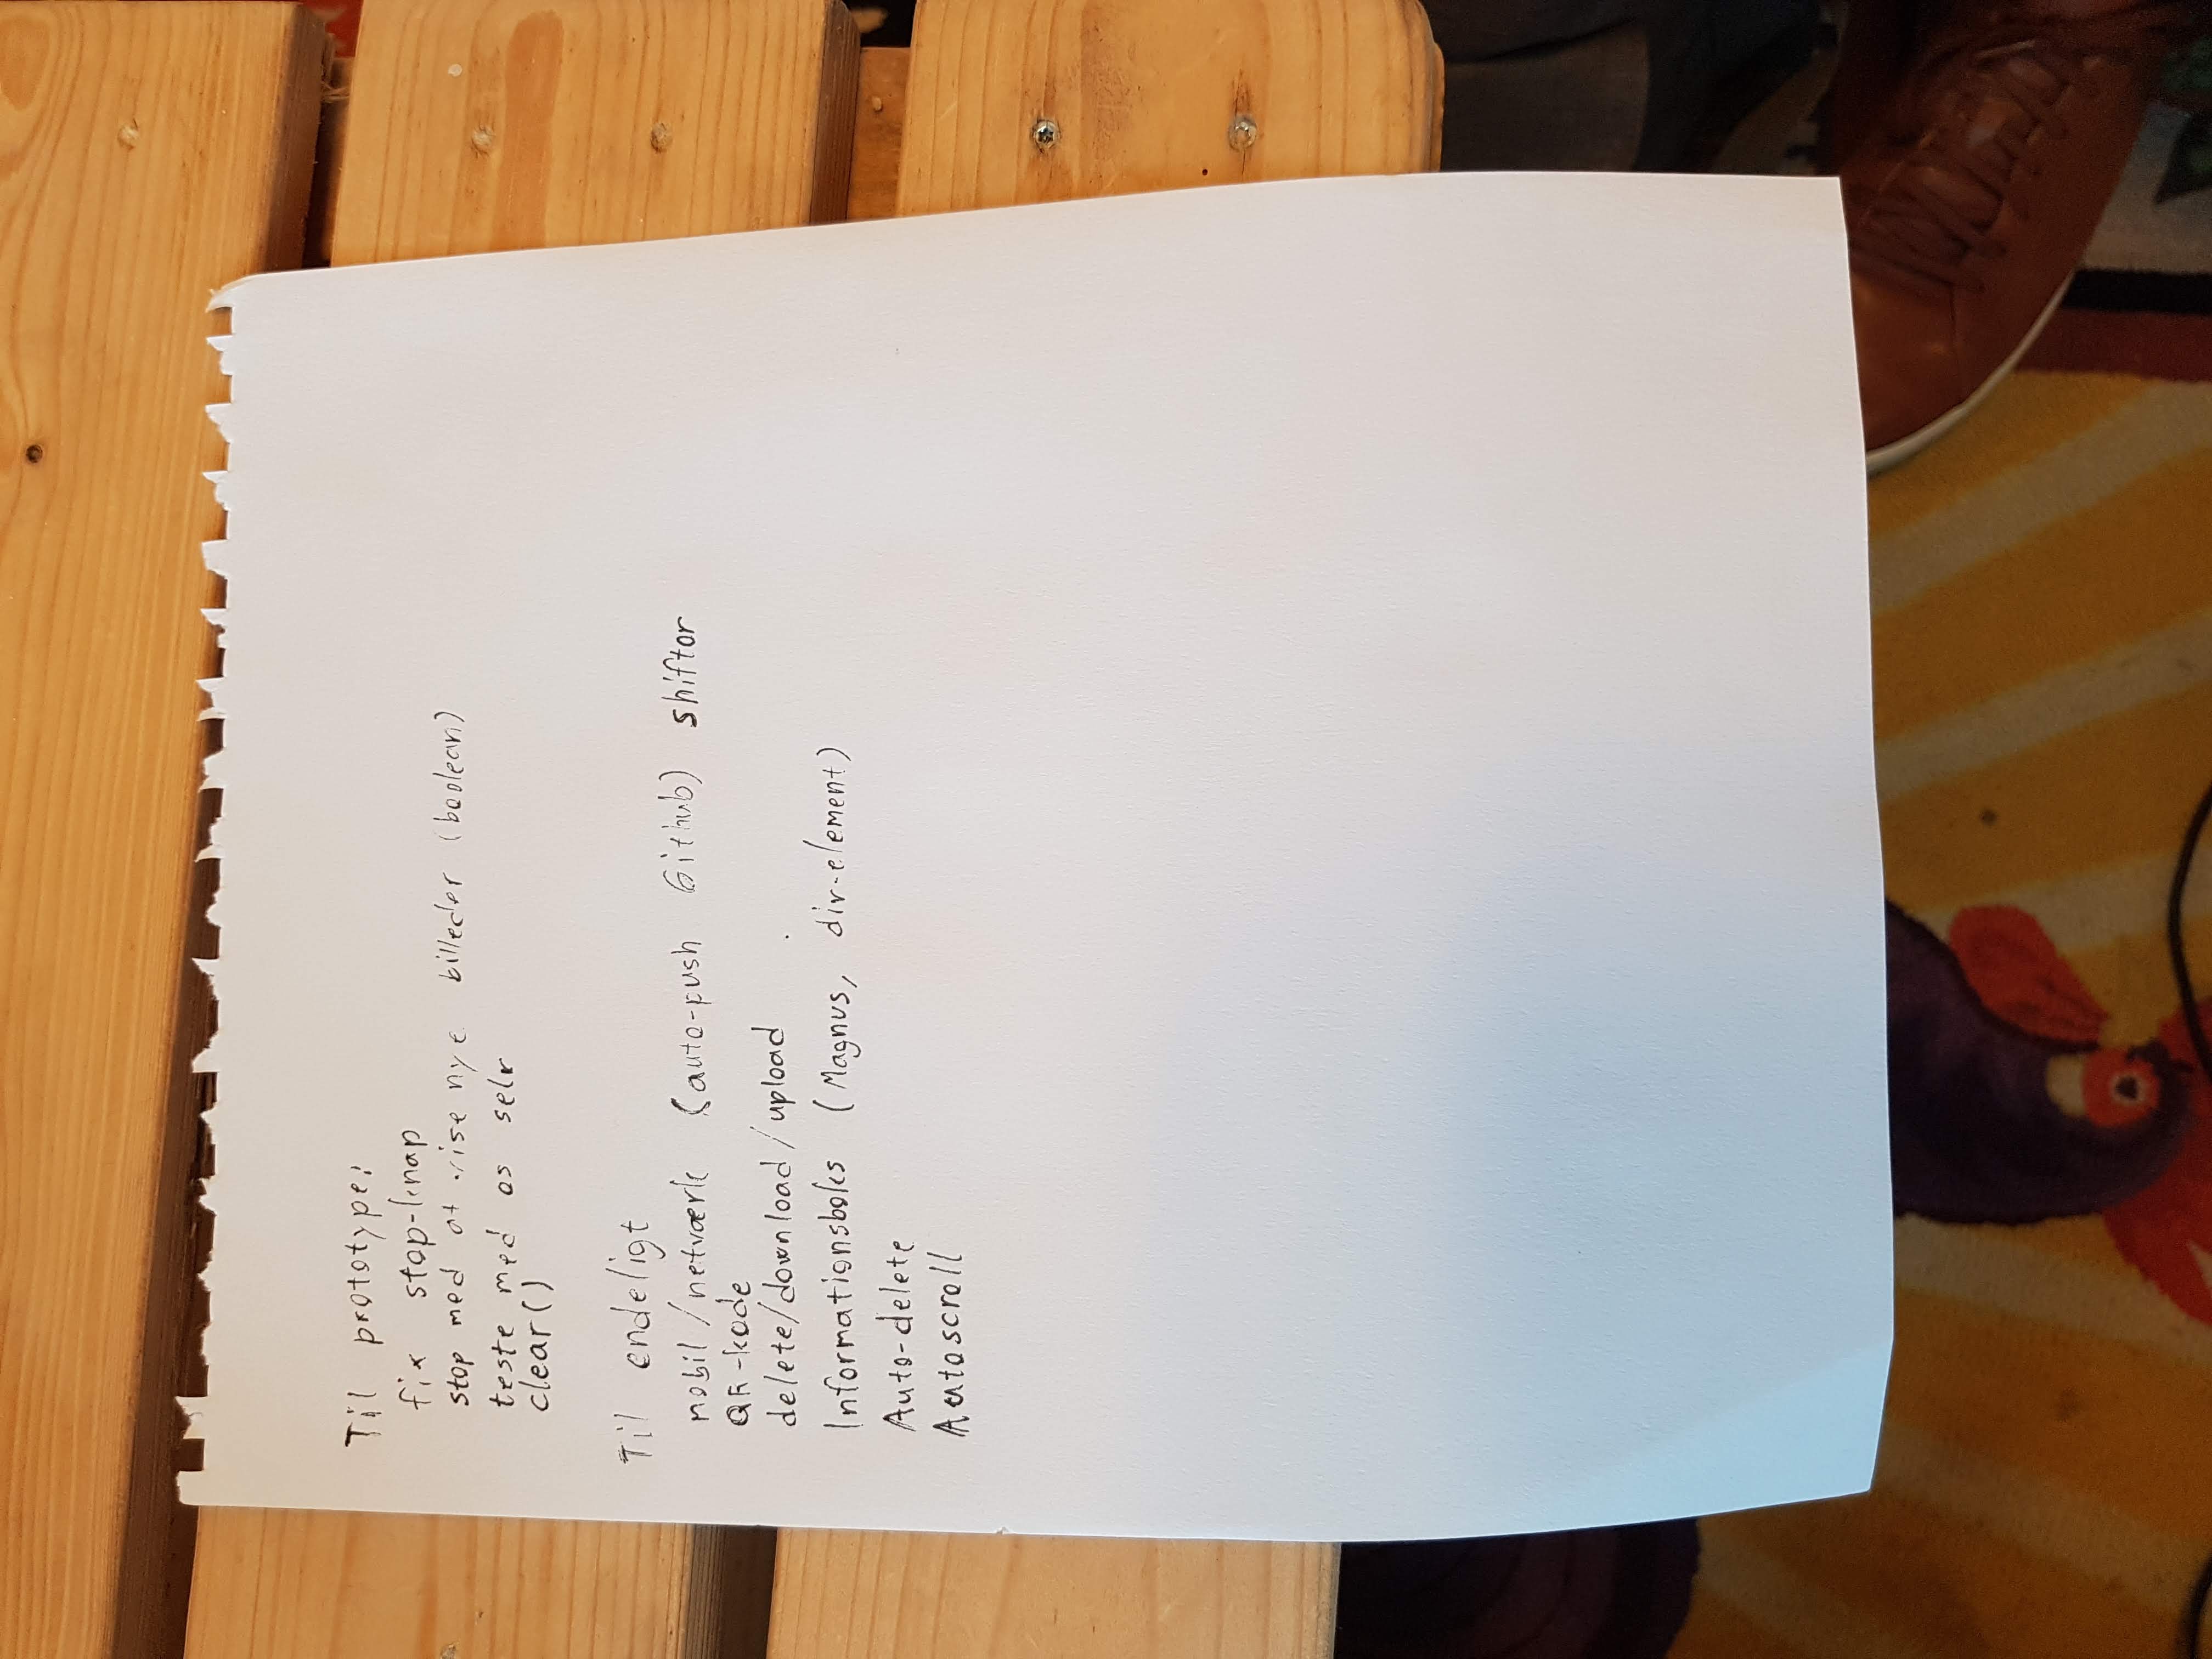 Til prototype:
fix stop-knap
stop med at vise nye billeder (boolean)
teste med os selv
clear()
Til endeligt
mobil/netværk (auto-push Github) shiftor
QR-kode
delete/download/upload
Informationsboks (Magnus, div-element)
Auto-delete
Autoscroll